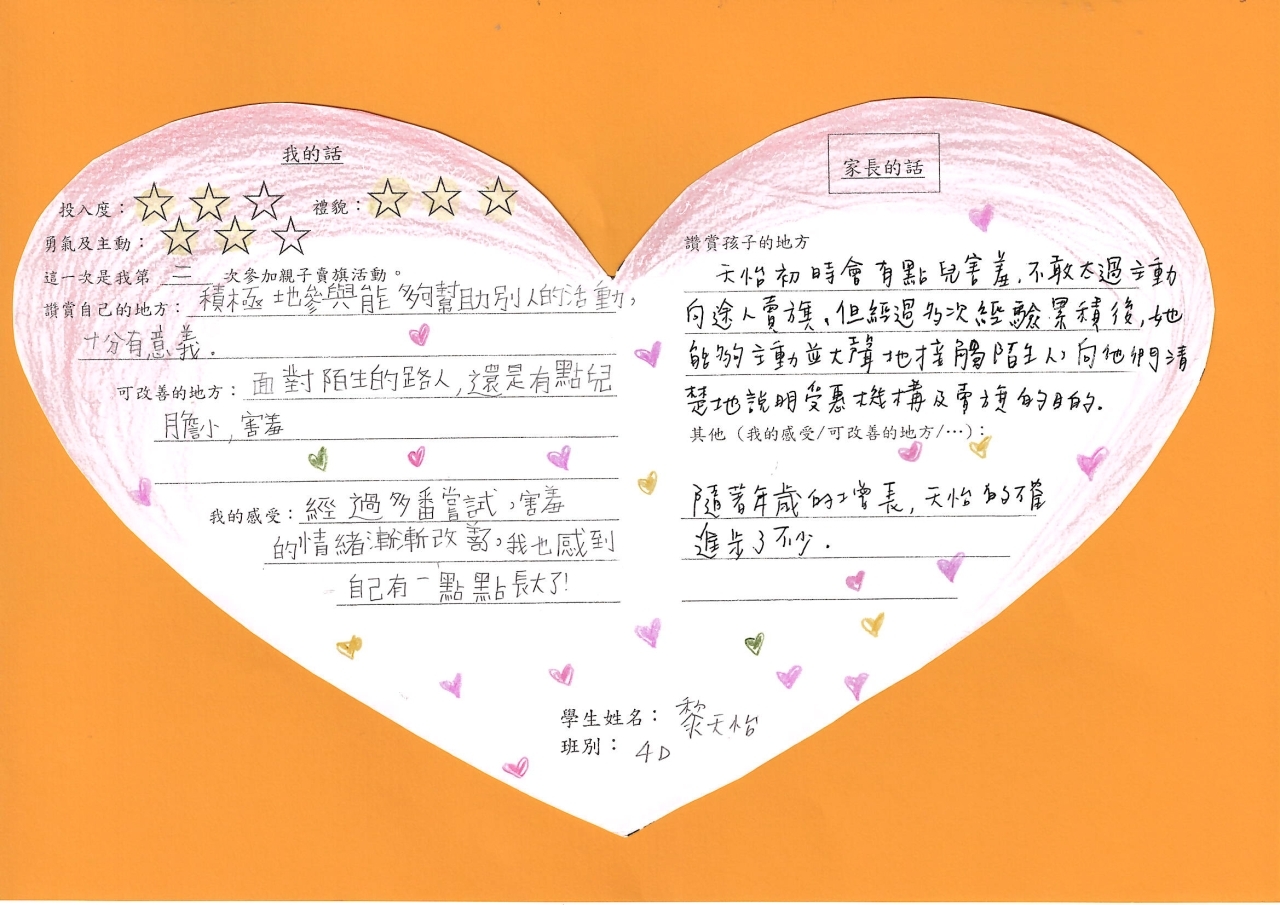 我的話
投入度：☆☆☆ 禮貌：☆☆☆
勇氣及主動：☆☆☆
這一次是我第 三 次參加親子賣旗活動。
讚賞自己的地方：積極地參與能夠幫助別人的活動，
十分有意義。
可改善的地方：面對陌生的路人，還是有點兒
膽小，害羞
我的感受：經過多番嘗試，害羞
的情緒漸漸改善，我也感到
自己有一點點長大了!
家長的話
讚賞孩子的地方
天怡初時會有點兒害羞，不敢太過主動
向途人賣旗。但經過多次經驗累積後，她
能夠主動並大聲地接觸陌生人，向他們清
楚地說明受惠機構及賣旗的目的。
其他（我的感受/可改善的地方/…）：
隨著年歲的增長，天怡的確
進步了不少。
學生姓名：黎天怡
班別：4D